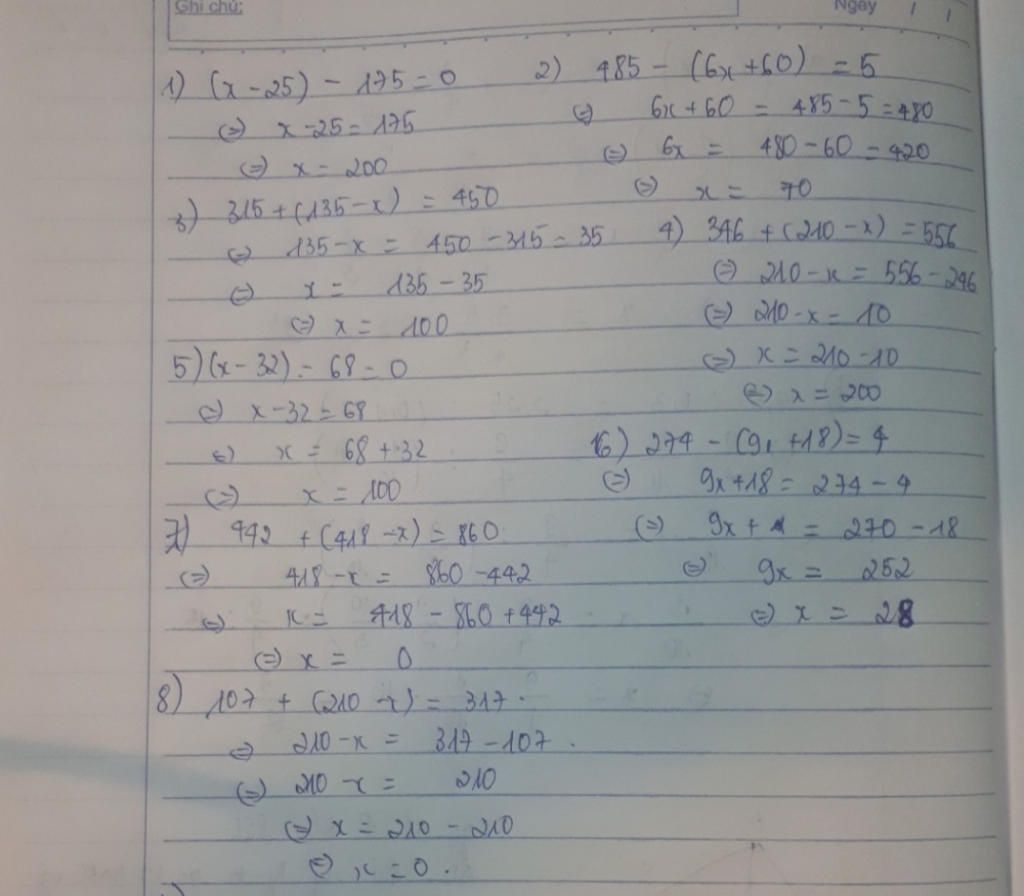 Ghi chú:
Ngày / /
1) (x-25) - 175 = 0
(=) x-25 = 175
(=) x = 200
2) 485 - (6x+60) = 5
(=) 6x+60 = 485-5 = 480
(=) 6x = 480-60 = 420
(=) x = 70
3) 315+(135-x) = 450
(=) 135-x = 450-315 = 35
(=) x = 135-35
(=) x = 100
4) 346 + (210-x) = 556
(=) 210-x = 556-246
(=) 210-x = 10
(=) x = 210-10
(=) x = 200
5) (x-32) - 68 = 0
(=) x-32 = 68
(=) x = 68+32
(=) x = 100
16) 274 - (9, +18) = 4
(=) 9x+18 = 274-4
(=) 9x + = 270-18
(=) 9x = 252
(=) x = 28
7) 442 + (418-x) = 860
(=) 418-x = 860-442
(=) x = 418-860+442
(=) x = 0
8) 107 + (210-x) = 317.
(=) 210-x = 317-107.
(=) 210-x = 210
(=) x = 210-210
(=) x = 0.